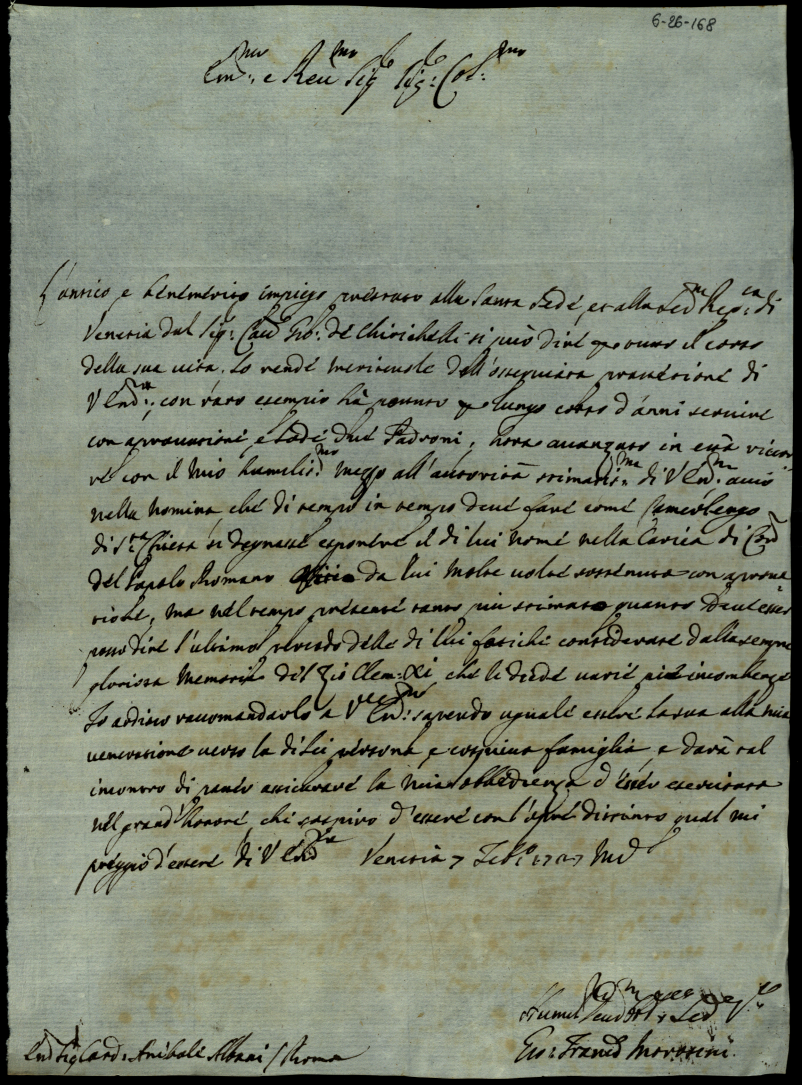 6-26-168
Em.mo e Reu.mo Sig.r Sig.r Col.mo
L'antico e benemerito impiego prestato alla Santa Sede, et alla Ser.ma Rep.ca di
Venetia dal Sig.r Cau. Gio: de Chirichelli si può dire per tutto il corso
della sua uita, lo rende meriteuole dell'ossequiata protetione di
V Em.za, con raro esempio hà potuto per lungo corso d'anni seruire
con aprouatione, e lode due Padroni, hora auanzato in età ricor=
re con il mio humiliss.mo mezzo all'autorità stimatis.ma di V Em.za acciò
nella nomina che di tempo in tempo deue fare come Camerlengo
di S.ta Chiesa si degnasse esponere il di lui nome nella Carica di
del Popolo Romano da lui molte uolte sostenuta con aproua=
tione, ma nel tempo presente tanto più stimato quanto deue esser
posso dire l'ultimo de di lui fatiche considerate dalla sempre
gloriosa memoria del Zio Clem: XI che le diede uarie incombenze
Io ardisco racomandarlo a V Em.za sapendo uguale essere la sua alla mia
ueneratione uerso la di lei persona, e cospicua famiglia, e darà tal
incontro di poter assicurare la mia obbedienza d'esser esercitata
nel grand'honore, che sospiro d'essere con l'opre distinto qual mi
preggio d'essere di V Em.za Venetia 7 Feb.o 1727 M V
Humil.
Em Sig Card: Anibale Albani / Roma
Gio: Fran.co Morosini